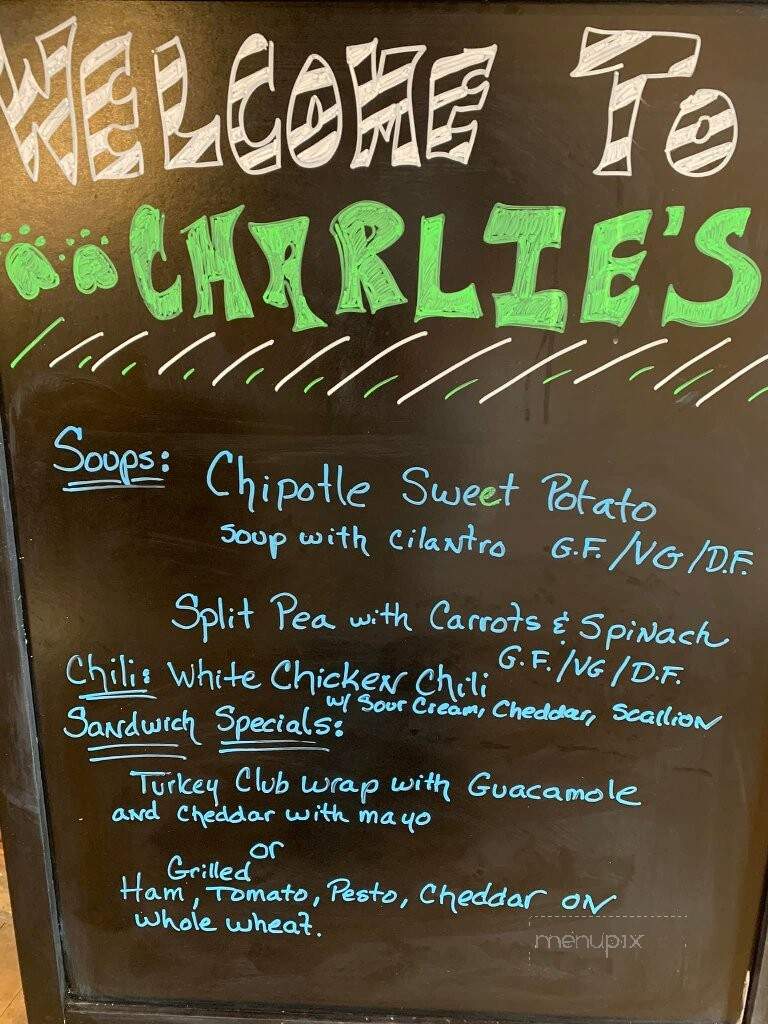 WELCOME TO
CHARLIE'S
Soups: Chipotle Sweet Potato
Soup with cilantro G.F./VG/D.F.
Split Pea with Carrots & Spinach
G.F./VG/D.F.
Chili: White Chicken Chili
w/ Sour Cream, Cheddar, Scallion
Sandwich Specials:
Turkey Club wrap with Guacamole
and Cheddar with mayo
or
Grilled
Ham, Tomato, Pesto, Cheddar on
whole wheat.
menupix